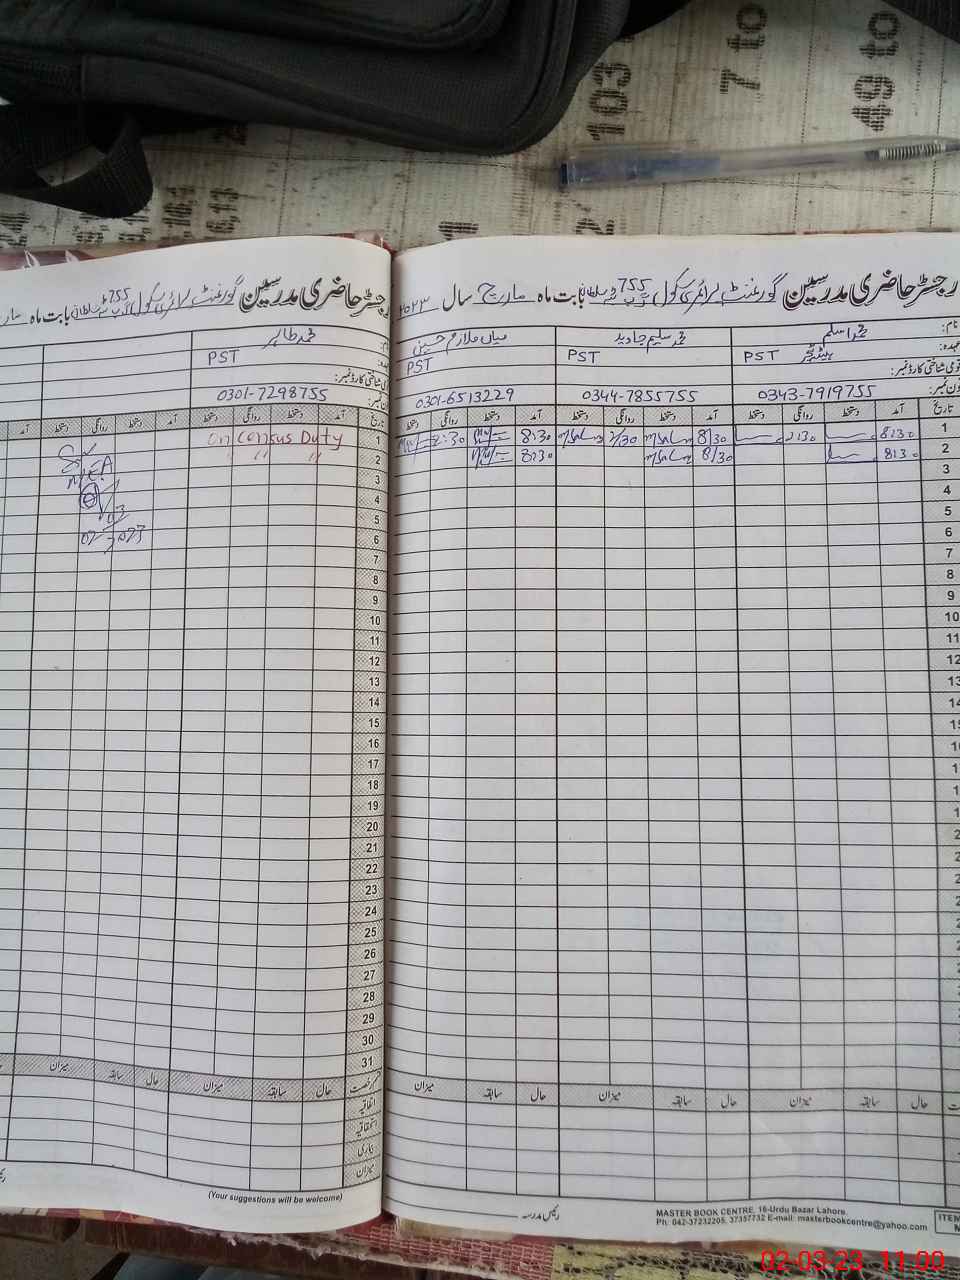 رجسٹر حاضری مدرسین گورنمنٹ پرائمری سکول 755 گ ب سلطان بابت ماہ مارچ سال ۲۰۲۳
نام: محمد اسلم
محمد سلیم جاوید
میاں ملازم حسین
عہدہ: ہیڈ ٹیچر PST
PST
PST
قومی شناختی کارڈ نمبر:
فون نمبر: 0343-7919755
0344-7855755
0301-6513229
تاریخ آمد دستخط روانگی دستخط آمد دستخط روانگی دستخط آمد دستخط روانگی دستخط
1 8:30 2:30 8:30 2:30 8:30 2:30
2 8:30 8:30 8:30
3
4
5
6
7
8
9
10
11
12
13
14
حال سابقہ میزان حال سابقہ میزان حال سابقہ میزان
رئیس مدرسہ
MASTER BOOK CENTRE, 16-Urdu Bazar Lahore.
Ph: 042-37232205, 37357732 E-mail: masterbookcentre@yahoo.com
ITEM
رجسٹر حاضری مدرسین گورنمنٹ پرائمری سکول 755 گ ب سلطان بابت ماہ
نام: محمد طاہر
عہدہ: PST
قومی شناختی کارڈ نمبر:
فون نمبر: 0301-7298755
تاریخ آمد دستخط روانگی دستخط آمد دستخط روانگی دستخط آمد
1 On Census Duty
2 " " "
MEA
3
4
5
6
7
8
9
10
11
12
13
14
15
16
17
18
19
20
21
22
23
24
25
26
27
28
29
30
31
رخصت حال سابقہ میزان حال سابقہ میزان
اتفاقیہ
استحقاقیہ
بیماری
میزان
(Your suggestions will be welcome)
103
7 to
49 to
02-03-23 11:00